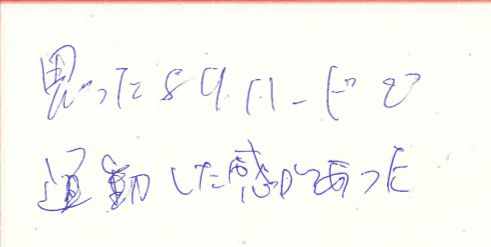 思ったよりハードで
運動した感があった